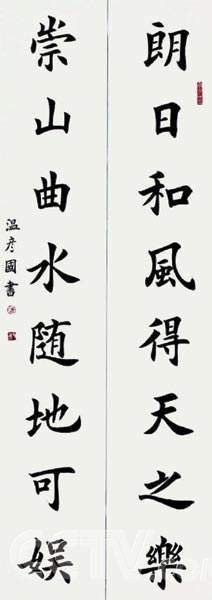 朗日和風得天之樂
崇山曲水随地可娱
温彦國書